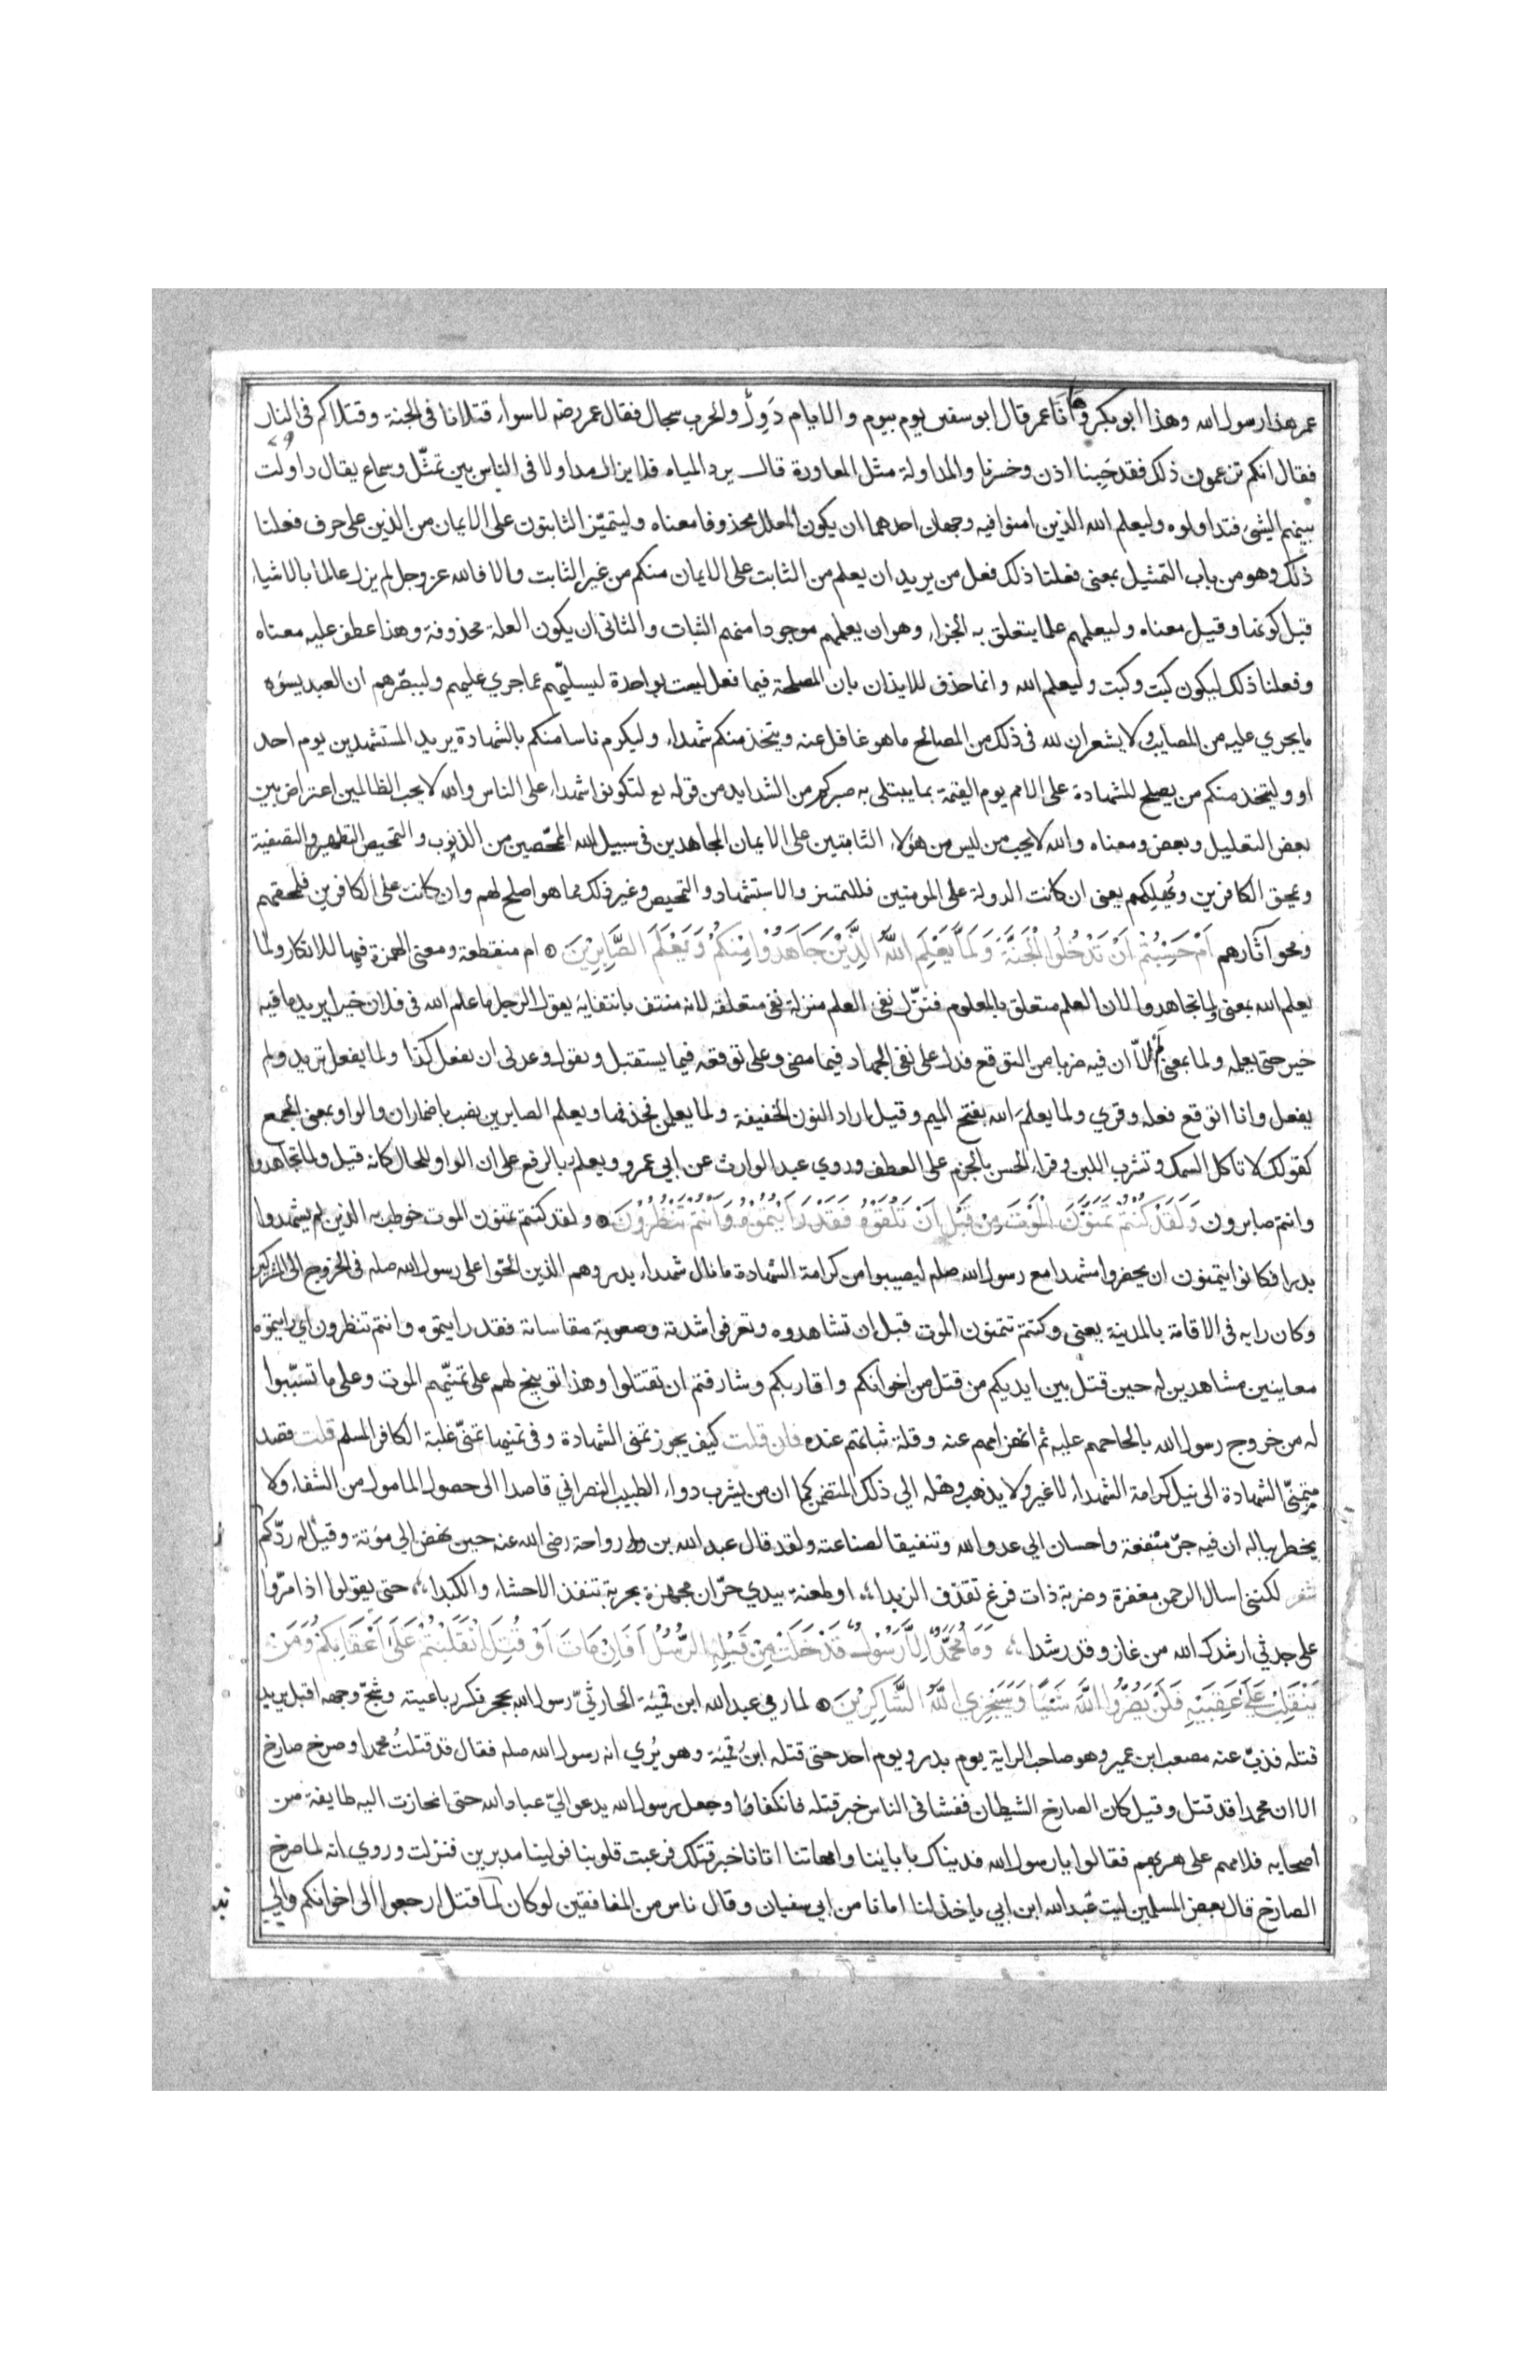 عمر هذا رسول الله وهذا ابو بكر وها انا عمر قال ابو سفين يوم بيوم والايام دول والحرب سجال فقال عمر رضه لا سواء قتلانا فى الجنة وقتلاكم فى النار
فقال انكم تزعمون ذلك فقد خبنا اذن وخسرنا والمداولة مثل المعاورة قال يرد المياه فلا يزال مداولا فى الناس بين تمثل وسماع يقال داولت
بينهم الشئ فتداولوه وليعلم الله الذين امنوا فيه وجهان احدهما ان يكون المعلل محذوفا معناه وليتميز الثابتون على الايمان من الذين على حرف فعلنا
ذلك وهو من باب التمثيل بمعنى فعلنا ذلك فعل من يريد ان يعلم من الثابت على الايمان منكم من غير الثابت والا فالله عز وجل لم يزل عالما بالاشياء
قبل كونها وقيل معناه وليعلمهم علما يتعلق به الجزاء وهو ان يعلمهم موجودا منهم الثبات والثانى ان يكون العلة محذوفة وهذا عطف عليه معناه
وفعلنا ذلك ليكون كيت وكيت وليعلم الله وانما حذف للايذان بان المصلحة فيما فعل ليست بواحدة ليسليهم عما جرى عليهم وليبصرهم ان العبد يسوه
ما يجري عليه من المصايب ولا يشعر ان لله فى ذلك من المصالح ما هو غافل عنه ويتخذ منكم شهداء وليكرم ناسا منكم بالشهادة يريد المستشهدين يوم احد
او وليتخذ منكم من يصلح للشهادة على الامم يوم القيمة بما يبتلى به صبركم من الشدايد من قوله تع لتكونوا شهداء على الناس والله لا يحب الظالمين اعتراض بين
بعض التعليل وبعض ومعناه والله لا يحب من ليس من هؤلاء الثابتين على الايمان المجاهدين فى سبيل الله الممحصين من الذنوب والتمحيص التطهير والتصفية
ويمحق الكافرين ويهلكهم يعنى ان كانت الدولة على المومنين فللتمييز والاستشهاد والتمحيص وغير ذلك مما هو اصلح لهم وان كانت على الكافرين فلمحقهم
ومحو آثارهم اَمْ حَسِبْتُمْ اَنْ تَدْخُلُوا الْجَنَّةَ وَلَمَّا يَعْلَمِ اللّٰهُ الَّذِيْنَ جَاهَدُوْا مِنْكُمْ وَيَعْلَمَ الصَّابِرِيْنَ ام منقطعة ومعنى الهمزة فيها للانكار ولما
يعلم الله بمعنى ولما تجاهدوا لان العلم متعلق بالمعلوم فنزل نفى العلم منزلة نفى متعلقه لانه منتف بانتفايه يعقول الرجل ما علم الله فى فلان خيرا يريد ما فيه
خير حتى يعلمه ولما بمعنى لم الا ان فيه ضربا من التوقع فدل على نفى الجهاد فيما مضى وعلى توقعه فيما يستقبل وتقول وعدنى ان يفعل كذا ولما يفعل تريد ولم
يفعل وانا اتوقع فعله وقري ولما يعلمَ الله بفتح الميم وقيل اراد النون الخفيفة ولما يعلمن فحذفها ويعلم الصابرين نصب باضمار ان والواو بمعنى الجمع
كقولك لا تاكل السمك وتشرب اللبن وقراء الحسن بالجزم على العطف وروي عبد الوارث عن ابي عمرو ويعلم بالرفع على ان الواو للحال كانه قيل ولما تجاهدوا
وانتم صابرون وَلَقَدْ كُنْتُمْ تَمَنَّوْنَ الْمَوْتَ مِنْ قَبْلِ اَنْ تَلْقَوْهُ فَقَدْ رَاَيْتُمُوْهُ وَاَنْتُمْ تَنْظُرُوْنَ ولقد كنتم تمنون الموت خوطب به الذين لم يشهدوا
بدرا فكانوا يتمنون ان يحضروا مشهدا مع رسول الله صلم ليصيبوا من كرامة الشهادة ما نال شهداء بدر وهم الذين الحوا على رسول الله صلم فى الخروج الى المشركين
وكان رايه فى الاقامة بالمدينة يعنى وكنتم تتمنون الموت قبل ان تشاهدوه وتعرفوا شدته وصعوبة مقاساته فقد رايتموه وانتم تنظرون اي رايتموه
معاينين مشاهدين له حين قتل بين ايديكم من قتل من اخوانكم واقاربكم وشارفتم ان تقتلوا وهذا توبيخ لهم على تمنيهم الموت وعلى ما تسببوا
له من خروج رسول الله بالحاحهم عليه ثم انهزامهم عنه وقلة ثباتهم عنده فان قلت كيف يجوز تمنى الشهادة وفى تمنيها تمنى غلبة الكافر المسلم قلت قصد
متمنى الشهادة الى نيل كرامة الشهداء لا غير ولا يذهب وهله الي ذلك المتضمن كما ان من يشرب دواء الطبيب النصراني قاصدا الى حصول المامول من الشفاء ولا
يخطر بباله ان فيه جر منفعة واحسان الي عدو الله وتنفيقا لصناعته ولقد قال عبد الله بن رواحة رضى الله عنه حين نهض الي مؤتة وقيل له ردكم
شعر لكننى اسال الرحمن مغفرة وضربة ذات فرغ تقذف الزبدا او طعنة بيدي حران مجهزة بحربة تنفذ الاحشاء والكبدا حتى يقولوا اذا مروا
على جدثي ارشدك الله من غاز وقد رشدا وَمَا مُحَمَّدٌ اِلَّا رَسُوْلٌ قَدْ خَلَتْ مِنْ قَبْلِهِ الرُّسُلُ اَفَاِنْ مَاتَ اَوْ قُتِلَ انْقَلَبْتُمْ عَلٰى اَعْقَابِكُمْ وَمَنْ
يَنْقَلِبْ عَلٰى عَقِبَيْهِ فَلَنْ يَضُرَّ اللّٰهَ شَيْئًا وَسَيَجْزِي اللّٰهُ الشَّاكِرِيْنَ لما رمي عبد الله ابن قمئة الحارثي رسول الله بحجر فكسر رباعيته وشج وجهه اقبل يريد
قتله فذب عنه مصعب ابن عمير وهو صاحب الراية يوم بدر ويوم احد حتى قتله ابن قمئة وهو يُري انه رسول الله صلم فقال قد قتلتُ محمدا وصرخ صارخ
الا ان محمدا قد قتل وقيل كان الصارخ الشيطان ففشا فى الناس خبر قتله فانكفاؤا وجعل رسول الله يدعو اليّ عباد الله حتى انحازت اليه طايفة من
اصحابه فلامهم على هربهم فقالوا يا رسول الله فديناك بابائنا وامهاتنا اتانا خبر قتلك فرعبت قلوبنا فولينا مدبرين فنزلت وروي انه لما صرخ
الصارخ قال بعض المسلمين ليت عبد الله ابن ابي ياخذ لنا امانا من ابي سفيان وقال ناس من المنافقين لو كان لما قتل ارجعوا الى اخوانكم والي